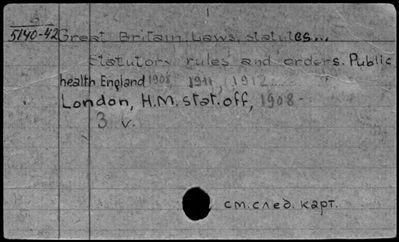 5140-42 Great Britain. Laws, statutes...
Statutory rules and orders. Public
health England 1908, 1911, 1912
London, H.M. stat. off, 1908-
3 v.
см. след. карт.